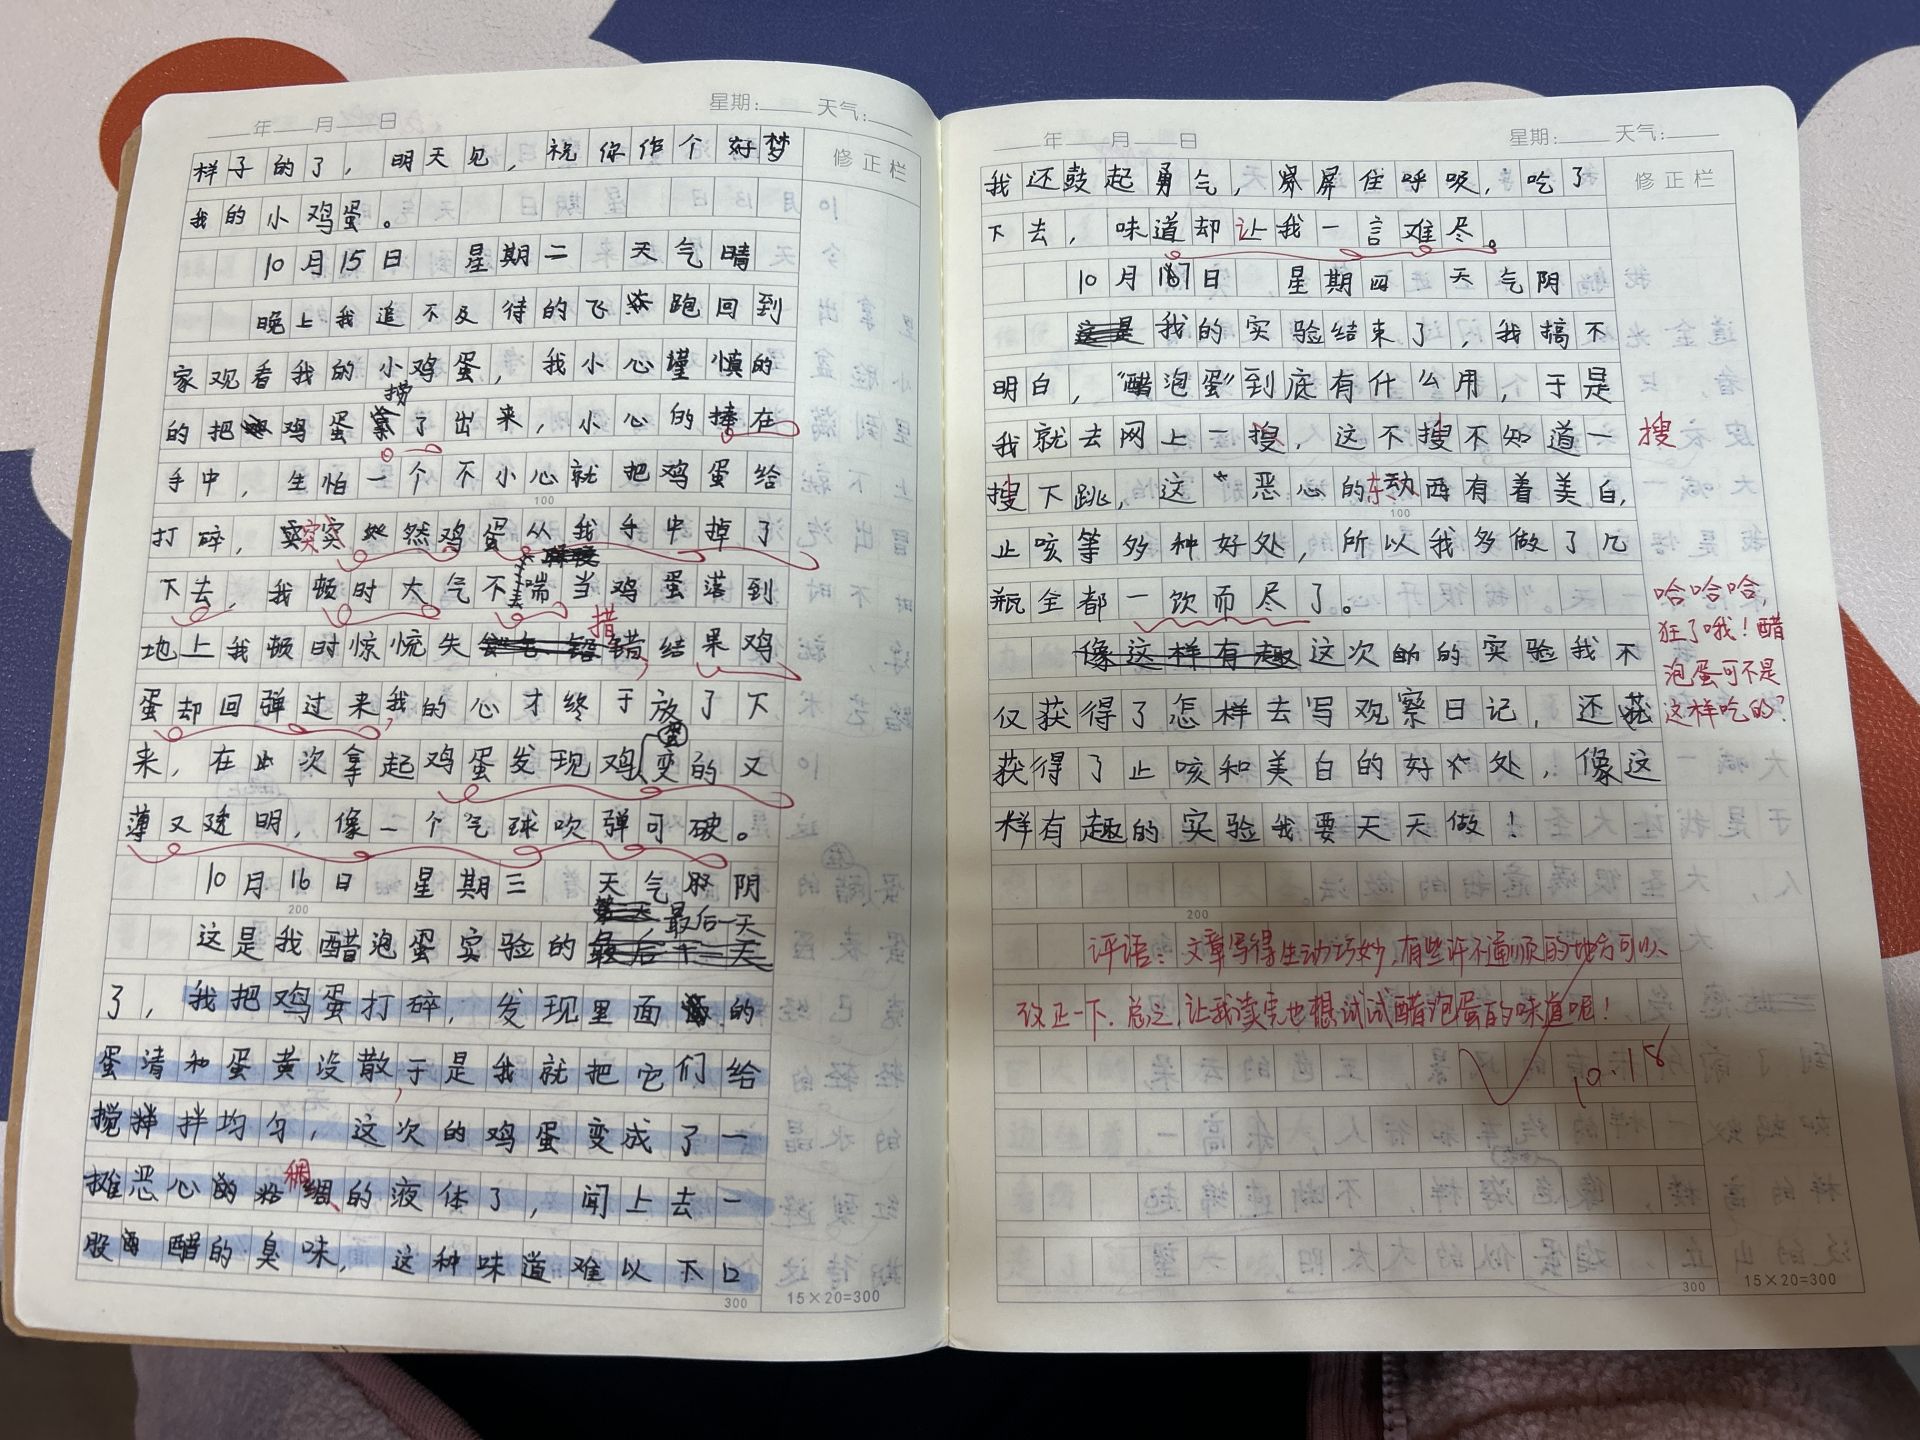 年 月 日 星期: 天气:
修正栏
样子的了，明天见，祝你作个好梦
我的小鸡蛋。
10月15日 星期二 天气晴
晚上我追不及待的飞跑回到
家观看我的小鸡蛋，我小心谨慎的
捞
的把鸡蛋拿了出来，小心的捧在
手中，生怕一个不小心就把鸡蛋给
100
打碎，突实然鸡蛋从我手中掉了
下去，我顿时大气不喘当鸡蛋落到
措
地上我顿时惊慌失错结果鸡
蛋却回弹过来，我的心才终于放了下
蛋
来，在此次拿起鸡蛋发现鸡变的又
薄又透明，像一个气球吹弹可破。
10月16日 星期三 天气阴
200
最后一天
这是我醋泡蛋实验的
了，我把鸡蛋打碎，发现里面的
蛋清和蛋黄没散，于是我就把它们给
搅拌均匀，这次的鸡蛋变成了一
稠
摊恶心的粘绸的液体了，闻上去一
股醋的臭味，这种味道难以下口
300
15×20=300
年 月 日 星期: 天气:
修正栏
我还鼓起勇气，屏住呼吸，吃了
下去，味道却让我一言难尽。
10月17日 星期四 天气阴
我的实验结束了，我搞不
明白，“醋泡蛋”到底有什么用，于是
我就去网上一搜，这不搜不知道一
搜
搜下跳，这恶心的东西有着美白，
100
止咳等多种好处，所以我多做了几
瓶全都一饮而尽了。
哈哈哈，
狂了哦！醋
泡蛋可不是
这样吃的？
像这样有趣这次的实验我不
仅获得了怎样去写观察日记，还
获得了止咳和美白的好处，像这
样有趣的实验我要天天做！
200
评语：文章写得生动巧妙，有些许不通顺的地方可以
改正一下，总之，让我读完也想试试醋泡蛋的味道呢！
10.18
300
15×20=300